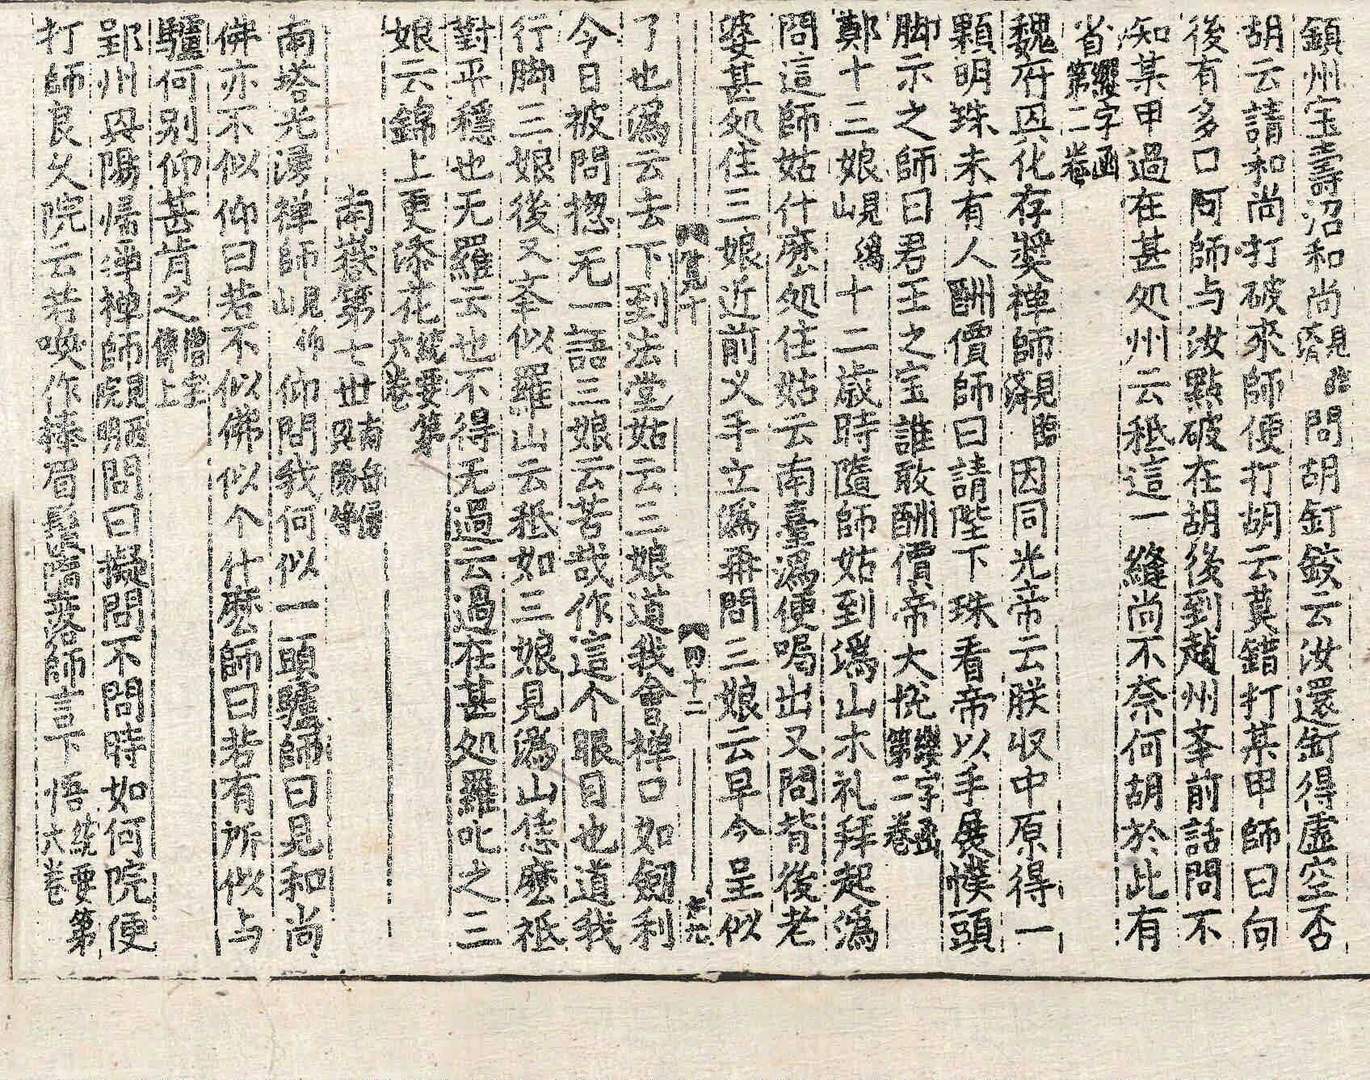 鎮州宝壽沼和尚見臨濟問胡釘鉸云汝還釘得虛空否
胡云請和尚打破來師便打胡云莫錯打某甲師曰向
後有多口阿師与汝點破在胡後到趙州夆前話問不
知某甲過在甚処州云秪這一縫尚不奈何胡於此有
省纓字函第二卷
魏府兴化存奨禅師見臨濟因同光帝云朕収中原得一
顆明珠未有人酬價師曰請陛下珠看帝以手展幞頭
脚示之師曰君王之宝誰敢酬價帝大悅纓字函第二卷
鄭十三娘見溈十二歳時隨師姑到溈山木礼拜起溈
問這師姑什麽処住姑云南臺溈便喝出又問背後老
婆甚処住三娘近前乂手立溈再問三娘云早今呈似
了也溈云去下到法堂姑云三娘道我會禅口如劔利
今日被問揔无一語三娘云苦哉作這个眼目也道我
行脚三娘後又夆似羅山云秪如三娘見溈山恁麽祗
對平穩也无羅云也不得无過云過在甚処羅叱之三
娘云錦上更添花統要第六卷
南嶽第七世
南塔光湧禅師見仰仰問我何似一頭驢師曰見和尚
佛亦不似仰曰若不似佛似个什麽師曰若有所似与
驢何别仰甚肯之僧宝傳上
郢州兴陽歸禅師問曰擬問不問時如何院便
打師良久院云若喚作棒眉髮墮落師言下悟統要第六卷